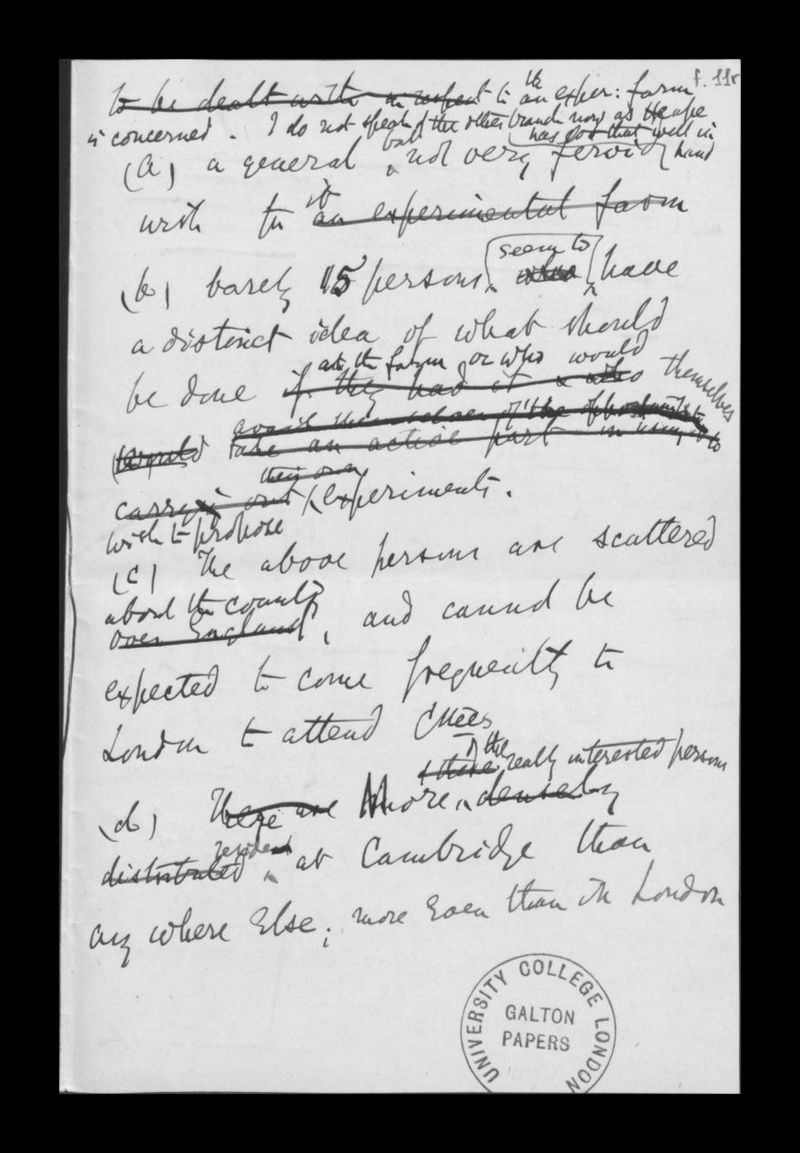 f. 11r
to be dealt with in respect to the an exper: farm
is concerned. I do not speak of the other branch now as Heape
has got that well in hand
(a) a general but not very fervid
wish for it an experimental farm
(b) barely 15 persons seem to who have
a distinct idea of what should
be done at the farm or who would
if they had it & who themselves
avail themselves of the opportunity
would take an active part in using it to
carrying out their own experiments.
wish to propose
(c) The above persons are scattered
about the country
over England, and cannot be
expected to come frequently to
London to attend Cttees
of the really interested persons
(d) There are More densely
distributed reside at Cambridge than
any where else; more even than in London
UNIVERSITY COLLEGE LONDON
GALTON
PAPERS